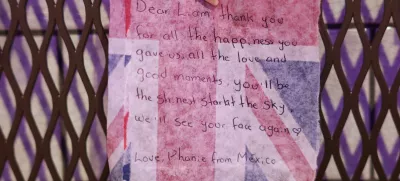 Dear Liam, thank you
for all the happiness you
gave us, all the love and
good moments. you'll be
the shinest star at the sky,
we'll see your face again ♡
Love, Phanie from México